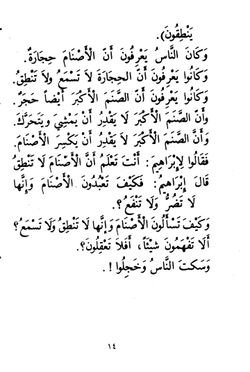 يَنْطِقُونَ).
وَكَانَ النَّاسُ يَعْرِفُونَ أَنَّ الْأَصْنَامَ حِجَارَةٌ.
وَكَانُوا يَعْرِفُونَ أَنَّ الحِجَارَةَ لَا تَسْمَعُ وَلَا تَنْطِقُ.
وَكَانُوا يَعْرِفُونَ أَنَّ الصَّنَمَ الْأَكْبَرَ أَيْضاً حَجَرٌ.
وَأَنَّ الصَّنَمَ الْأَكْبَرَ لَا يَقْدِرُ أَنْ يَمْشِيَ وَيَتَحَرَّكَ.
وَأَنَّ الصَّنَمَ الْأَكْبَرَ لَا يَقْدِرُ أَنْ يَكْسِرَ الْأَصْنَامَ.
فَقَالُوا لِإِبْرَاهِيمَ: أَنْتَ تَعْلَمُ أَنَّ الْأَصْنَامَ لَا تَنْطِقُ
قَالَ إِبْرَاهِيمُ: فَكَيْفَ تَعْبُدُونَ الْأَصْنَامَ وَإِنَّهَا
لَا تَضُرُّ وَلَا تَنْفَعُ؟.
وَكَيْفَ تَسْأَلُونَ الْأَصْنَامَ وَإِنَّهَا لَا تَنْطِقُ وَلَا تَسْمَعُ؟
أَلَا تَفْهَمُونَ شَيْئاً، أَفَلَا تَعْقِلُونَ؟.
وَسَكَتَ النَّاسُ وَخَجِلُوا!.
١٤